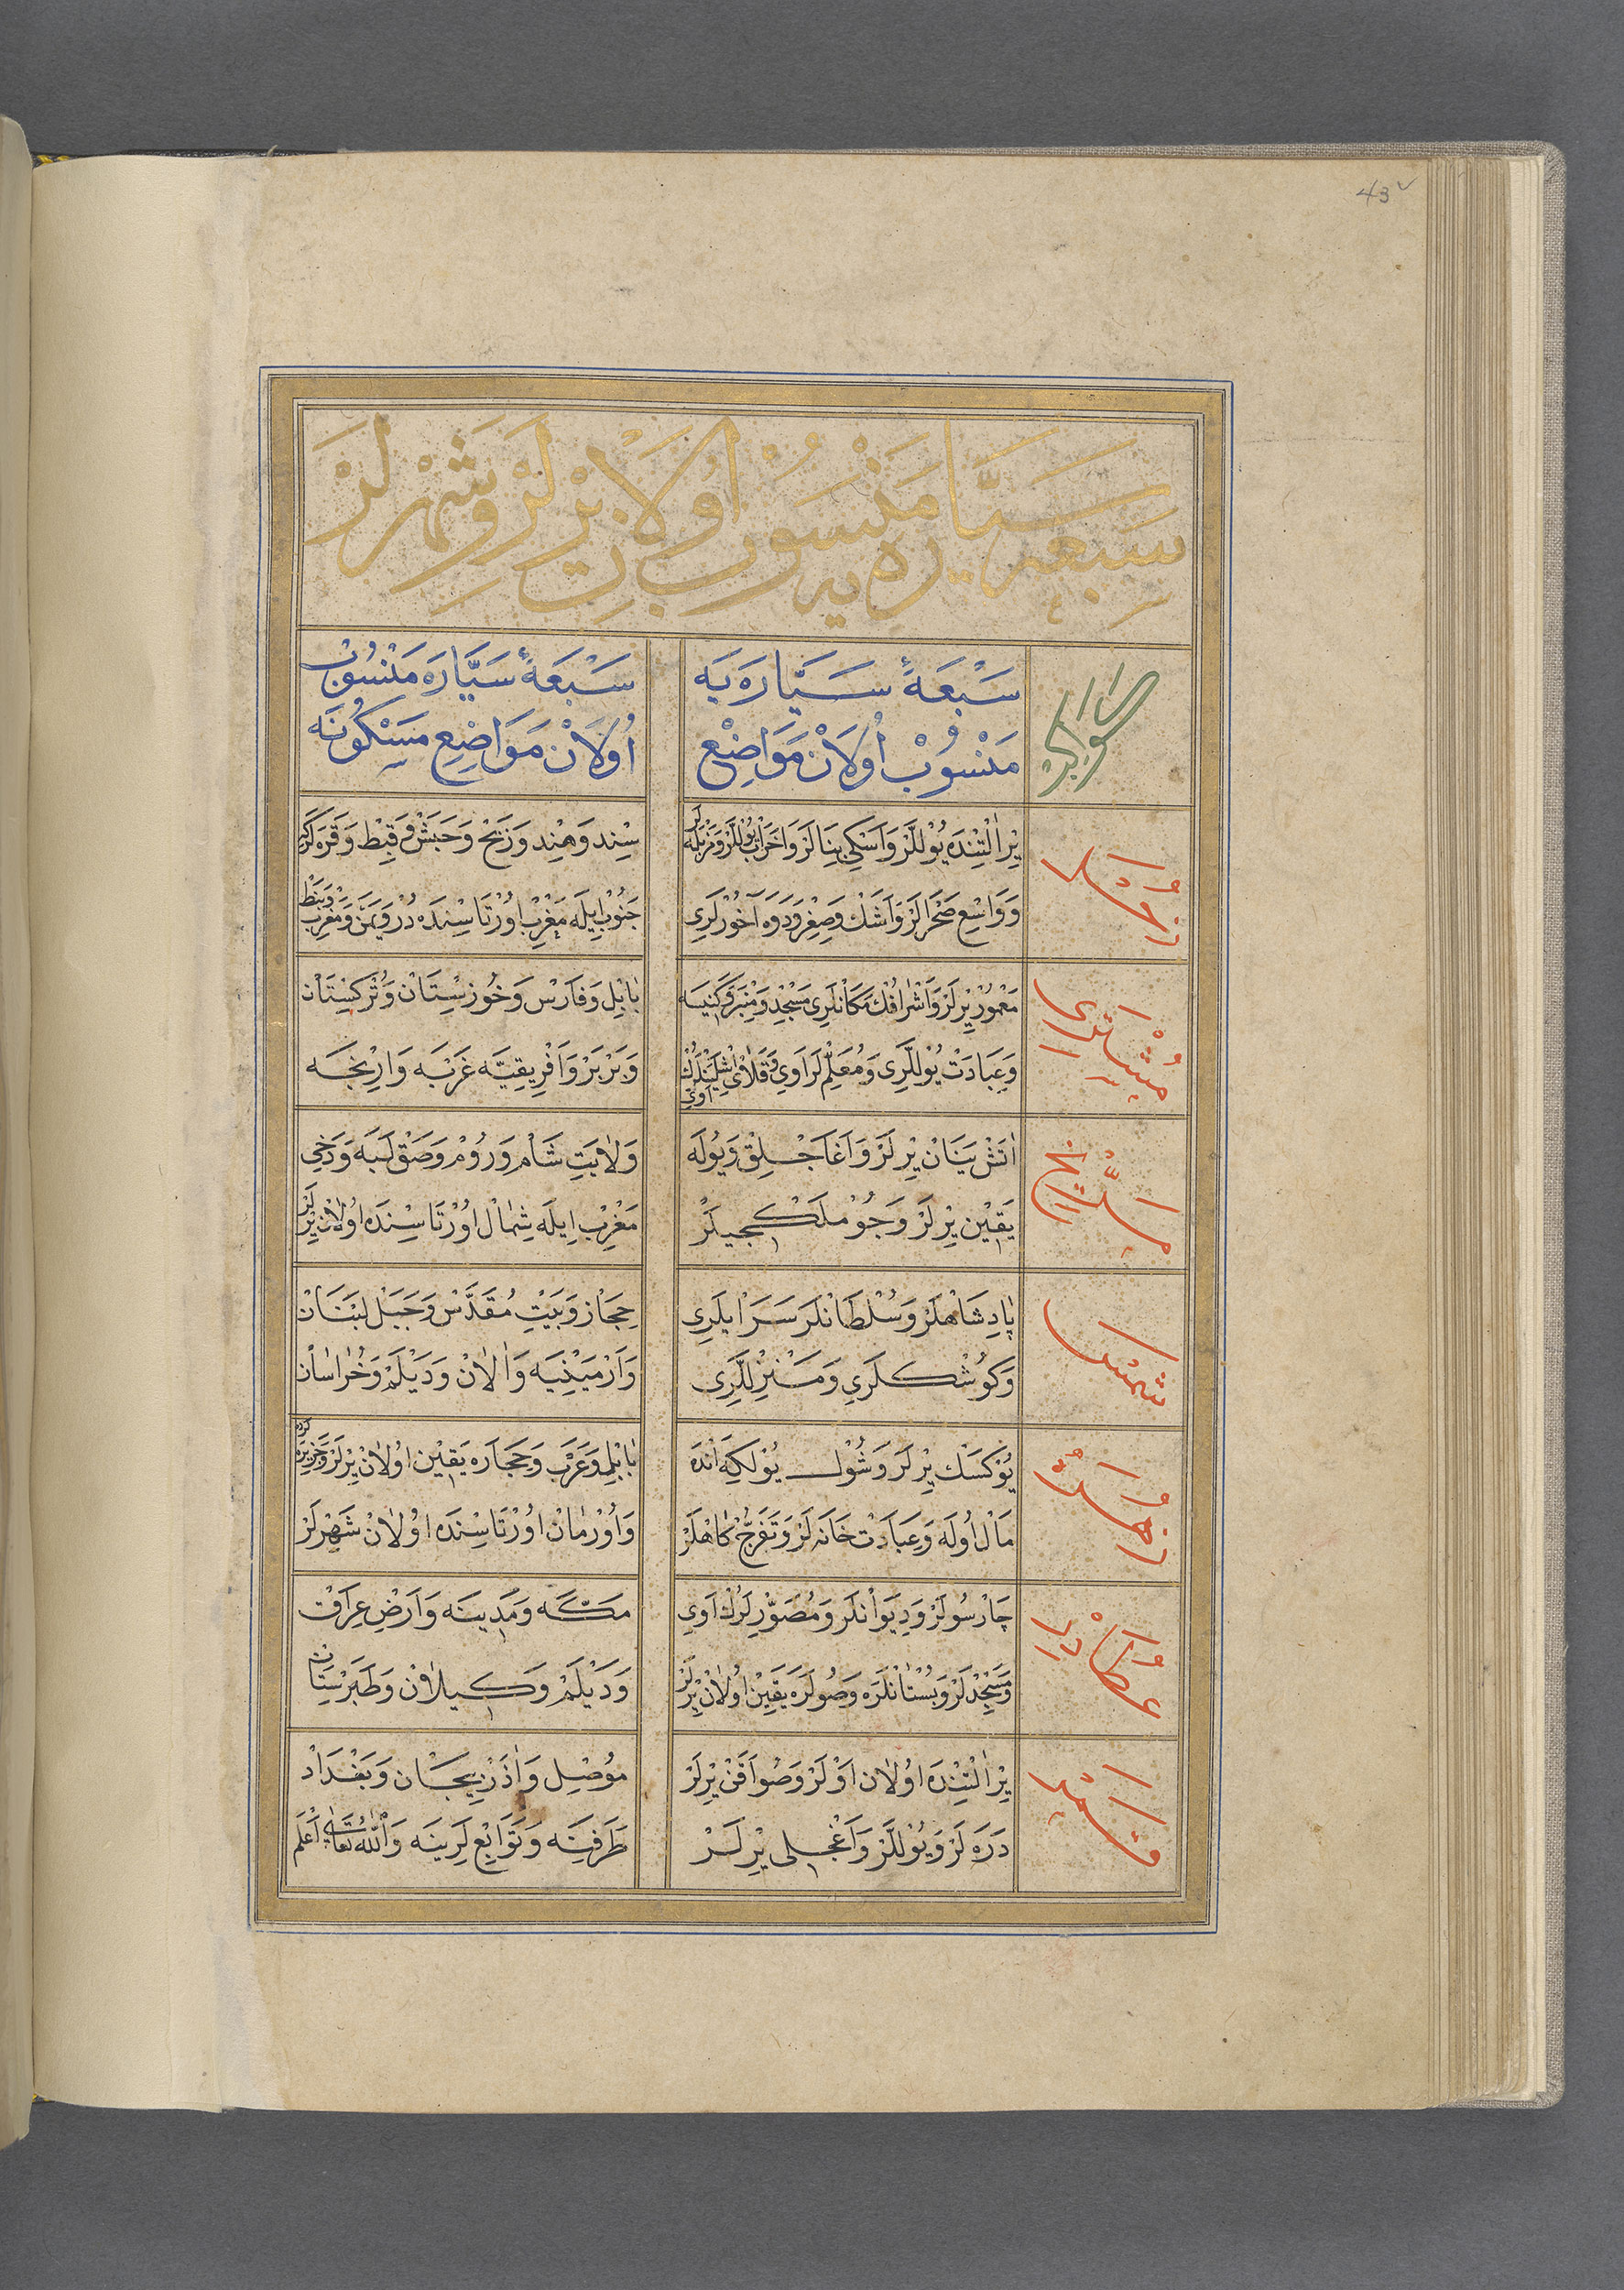 43v
سبعۀ سیاره یه منسوب اولان یرلر و شهرلر
کواکب
سَبْعَهٔ سَیَّارَه یَه
مَنْسُوبْ اُولَانْ مَوَاضِعْ
سَبْعَهٔ سَیَّارَه مَنْسُوبْ
اُولَانْ مَوَاضِعِ مَسْکُونَه
زحل
یر التنده یوللر و اسکی بنالر و اخراب یوللر و مزبله لر
و واسع صحرالر و اشك و صغر و دوه آخورلری
سند و هند و زنج و حبش و قبط و قره
جنوب ایله مغرب اورتاسنده در و یمن و مغرب و نبط
مشتری
معمور یرلر و اشرافك مکانلری مسجد و منبر و کنیسه
و عبادت یوللری و معلملر اوی
بابل و فارس و خوزستان و ترکستان
و بربر و افریقیه غربه
مریخ
اتش ینان یرلر و اغاجلق و یوله
یقین یرلر و جوملکجیلر
ولایت شام و روم و صقلبه و دخی
مغرب ایله شمال اورتاسنده اولان یرلر
شمس
پادشاهلر و سلطانلر سرایلری
و کوشکلری و منزللری
حجاز و بیت مقدس و جبل لبنان
و ارمینیه و الان و دیلم و خراسان
زهره
یوکسك یرلر و شول یول که انده
مال اوله و عبادت خانه لر و تفرج کاهلر
بابل و عرب و حجازه یقین اولان یرلر و جزیره
و اورمان اورتاسنده اولان شهرلر
عطارد
چارسولر و دیوانلر و مصورلرك اوی
و مسجدلر و بستانلره و صولره یقین اولان یرلر
مکه و مدینه و ارض عراق
و دیلم و کیلان و طبرستان
قمر
یر التنده اولان اولر و صو اقن یرلر
دره لر و یوللر و اغجلی یرلر
موصل و اذربیجان و بغداد
طرفنه و توابع لرینه والله تعالی اعلم